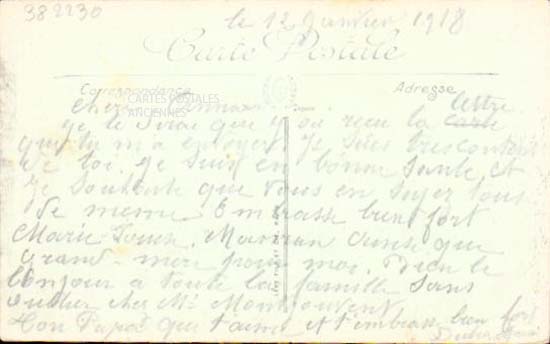 382230
le 12 Janvier 1918
Carte Postale
Correspondance
Adresse
CARTES POSTALES
ANCIENNES
Cher
lettre
Je te dirai que j'ai reçu la carte
que tu m'a envoyer Je suis tres content
de toi. Je suis en bonne Sante et
Je souhaite que vous en soyez tous
de meme Embrasse bien fort
Marie Louise, Maman ainsi que
grand-mere pour moi. Bien le
bonjour a toute la famille Sans
oublier cher Mr
Ton Papa qui t'aime et t'embrasse bien fort